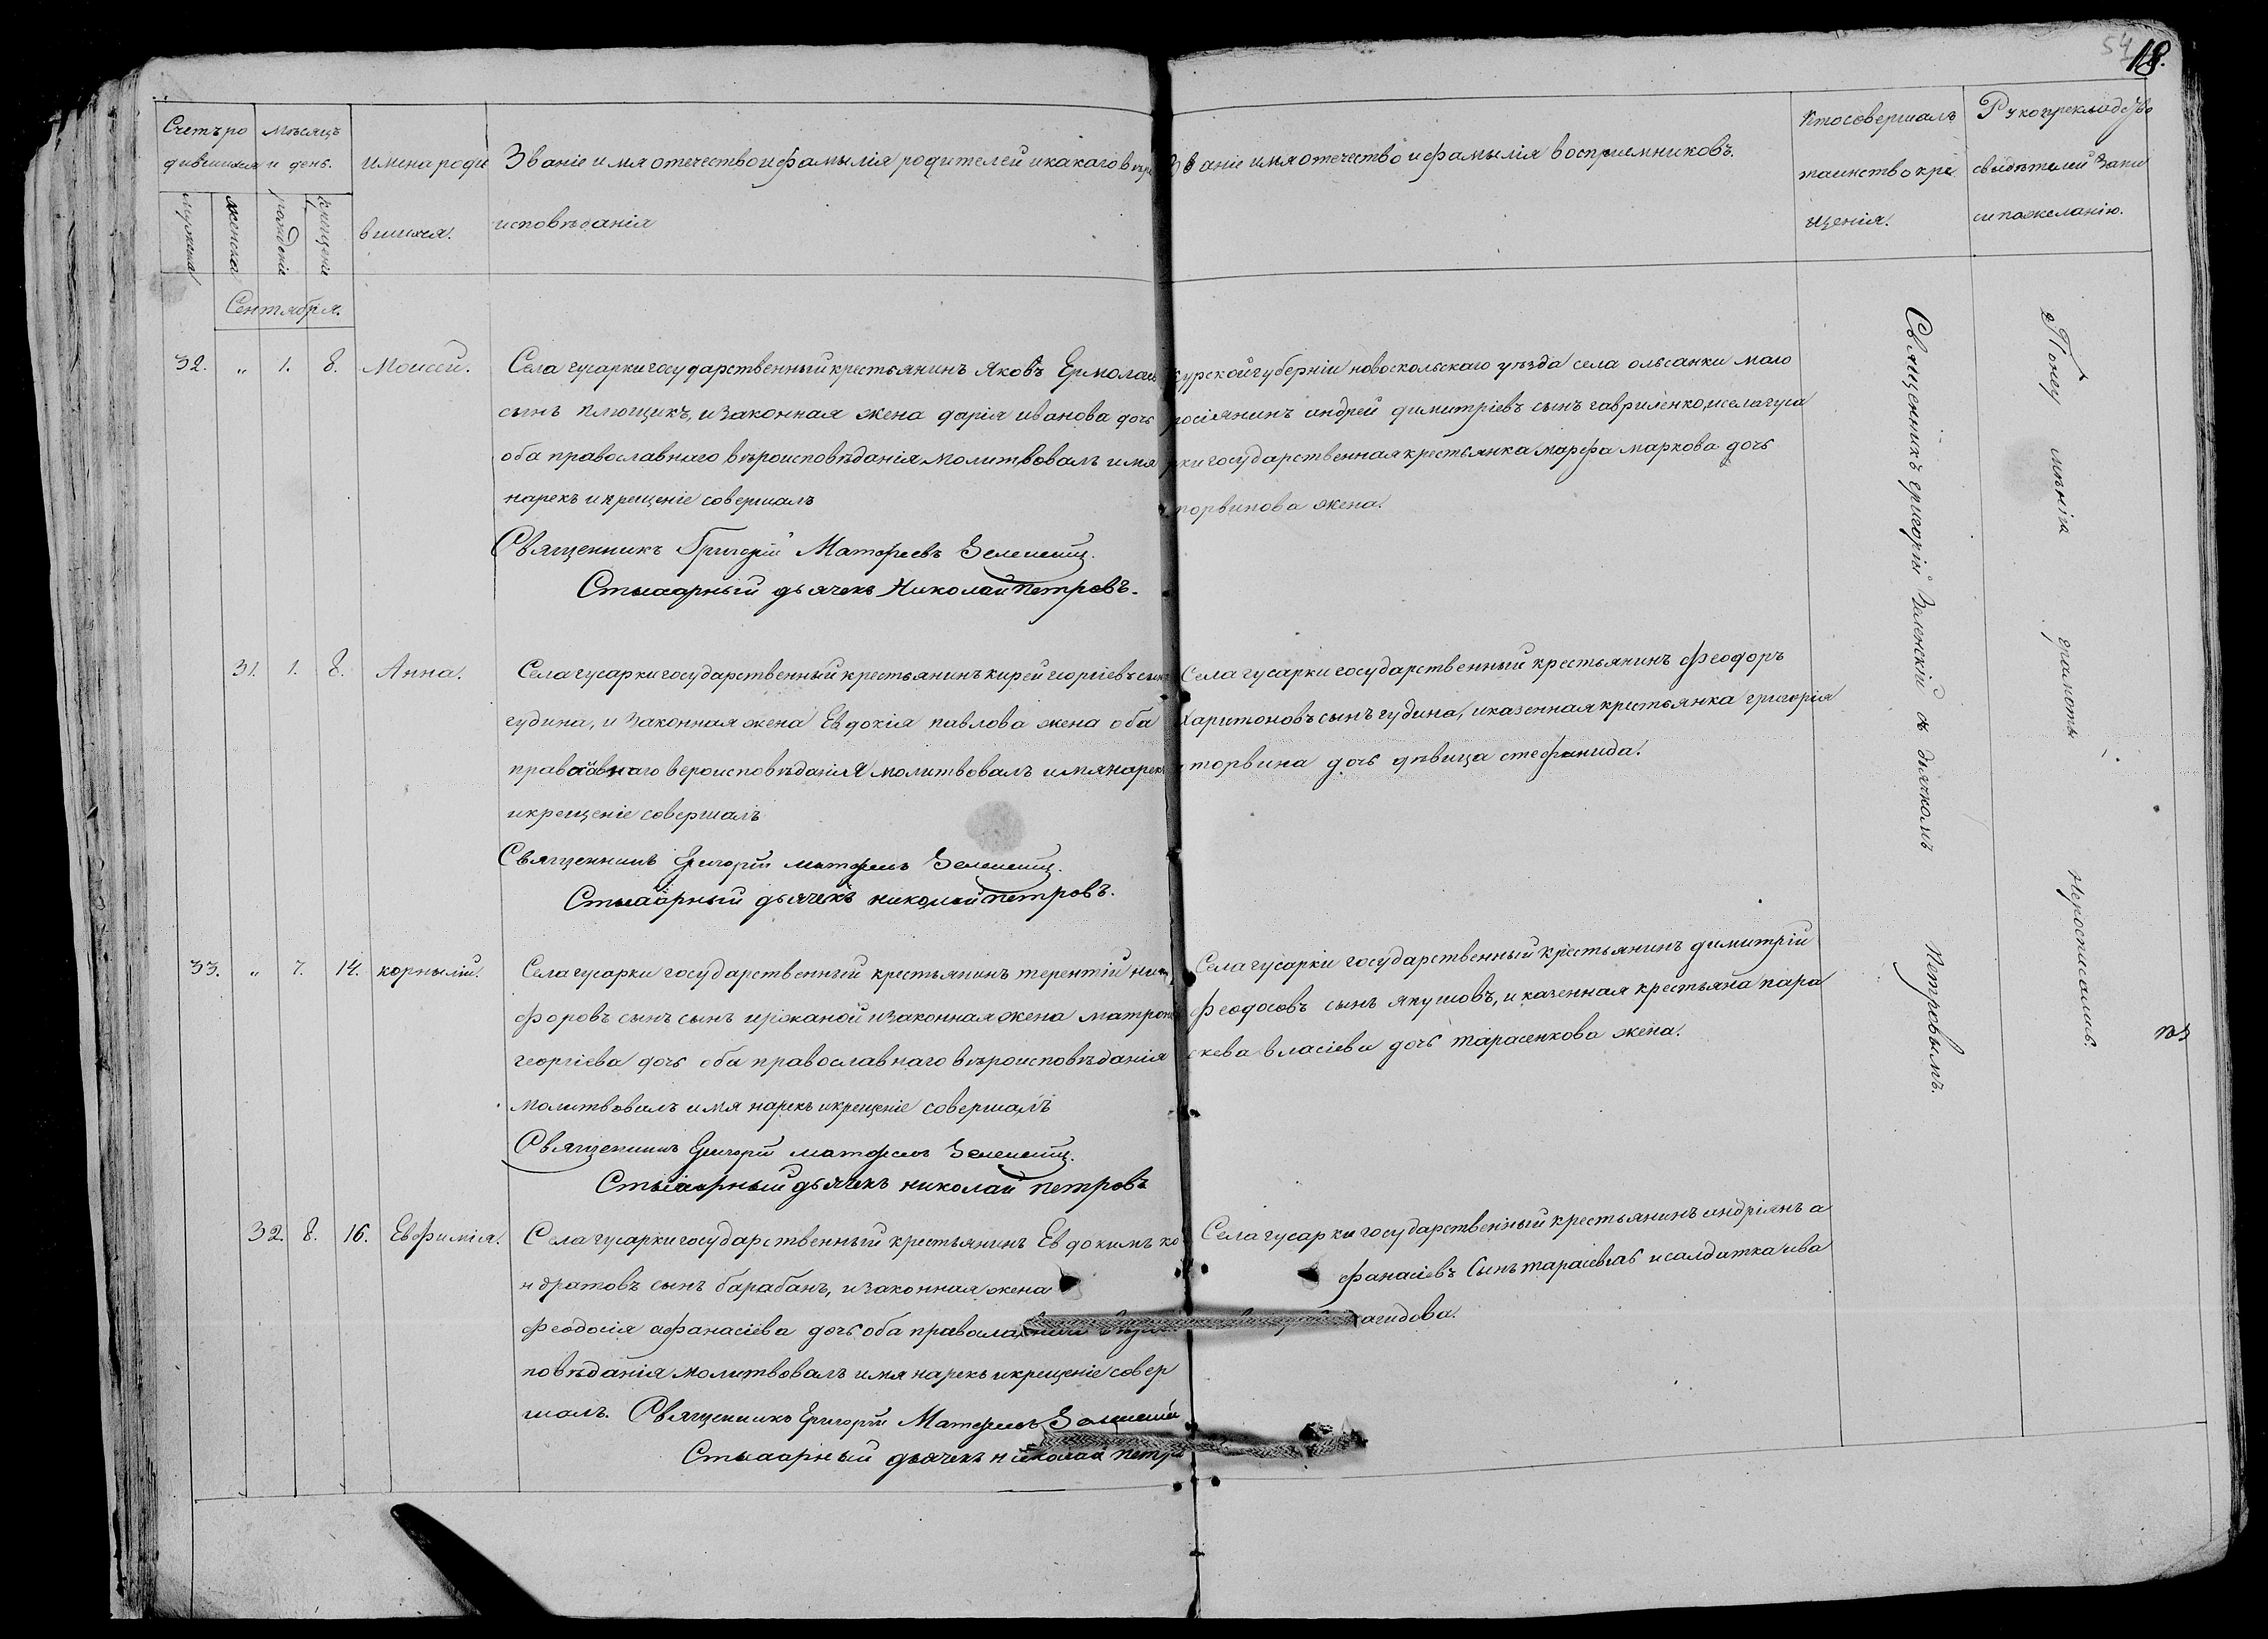 54 18.
Счетъ ро
дившихся
Мѣсяцъ
и день.
имена роди
вшихся.
Званіе имя отечество и фамылія родителей и какаго вѣро
исповѣданія
Званіе имя отечество и фамылія восприемниковъ.
Кто совершалъ
таинство кре
щенія.
Рукоприкладство
свидѣтелей запи
си пожеланію.
мужеска
женска
рожденія
крещенія
Сентября.
32. " 1. 8. Моисей.
Села гусарки государственный крестьянинъ Яковъ Ермолаевъ
сынъ плющикъ, и законная жена дарія иванова дочь
оба православнаго вѣроисповѣданія молитвовалъ имя
нарекъ и крещеніе совершалъ
Священникъ Григорій Матфеевъ Зеленскій.
дьячекъ Николай Петровъ.
курской губерніи новоскольскаго уѣзда села ольсанки мало
росіянинъ андрей димитріевъ сынъ гавриленко, и села гуса
рки государственная крестьянка марфа маркова дочь
торвинова жена.
31. 1. 8. Анна.
Села гусарки государственный крестьянинъ кирей георгіевъ сынъ
гудина, и законная жена Евдокія павлова жена оба
православнаго вероисповѣданія молитвовалъ имя нарекъ
и крещеніе совершалъ
Священникъ Григорій матфеевъ Зеленскій.
дьячекъ николай петровъ.
Села гусарки государственный крестьянинъ феодоръ
Харитоновъ сынъ гудина, и казенная крестьянка григорія
торвина дочь дѣвица стефанида.
33. " 7. 14. корнылій.
Села гусарки государственный крестьянинъ терентій ники
форовъ сынъ сынъ иржаной и законная жена матрона
георгіева дочь оба православнаго вѣроисповѣданія
молитвовалъ имя нарекъ и крещеніе совершалъ
Священникъ Григорій матфеевъ Зеленскій.
дьячекъ николай петровъ
Села гусарки государственный крестьянинъ димитрій
феодосовъ сынъ якушовъ, и казенная крестьяна пара
скева власіева дочь тарасенкова жена.
32. 8. 16. Евфимія.
Села гусарки государственный крестьянинъ Евдокимъ ко
ндратовъ сынъ барабанъ, и законная жена
феодосія афанасіева дочь оба
повѣданія молитвовалъ имя нарекъ и крещеніе совер
шалъ. Священникъ Григорій Матфеевъ Зеленскій
дьячекъ николай петро
Села гусарки государственный крестьянинъ андріянъ а
фанасіевъ сынъ и салдатка ива
Священникъ григорій Зеленскій съ дьячкомъ Петровымъ.
По неу мѣнія грамоты нероспісались.